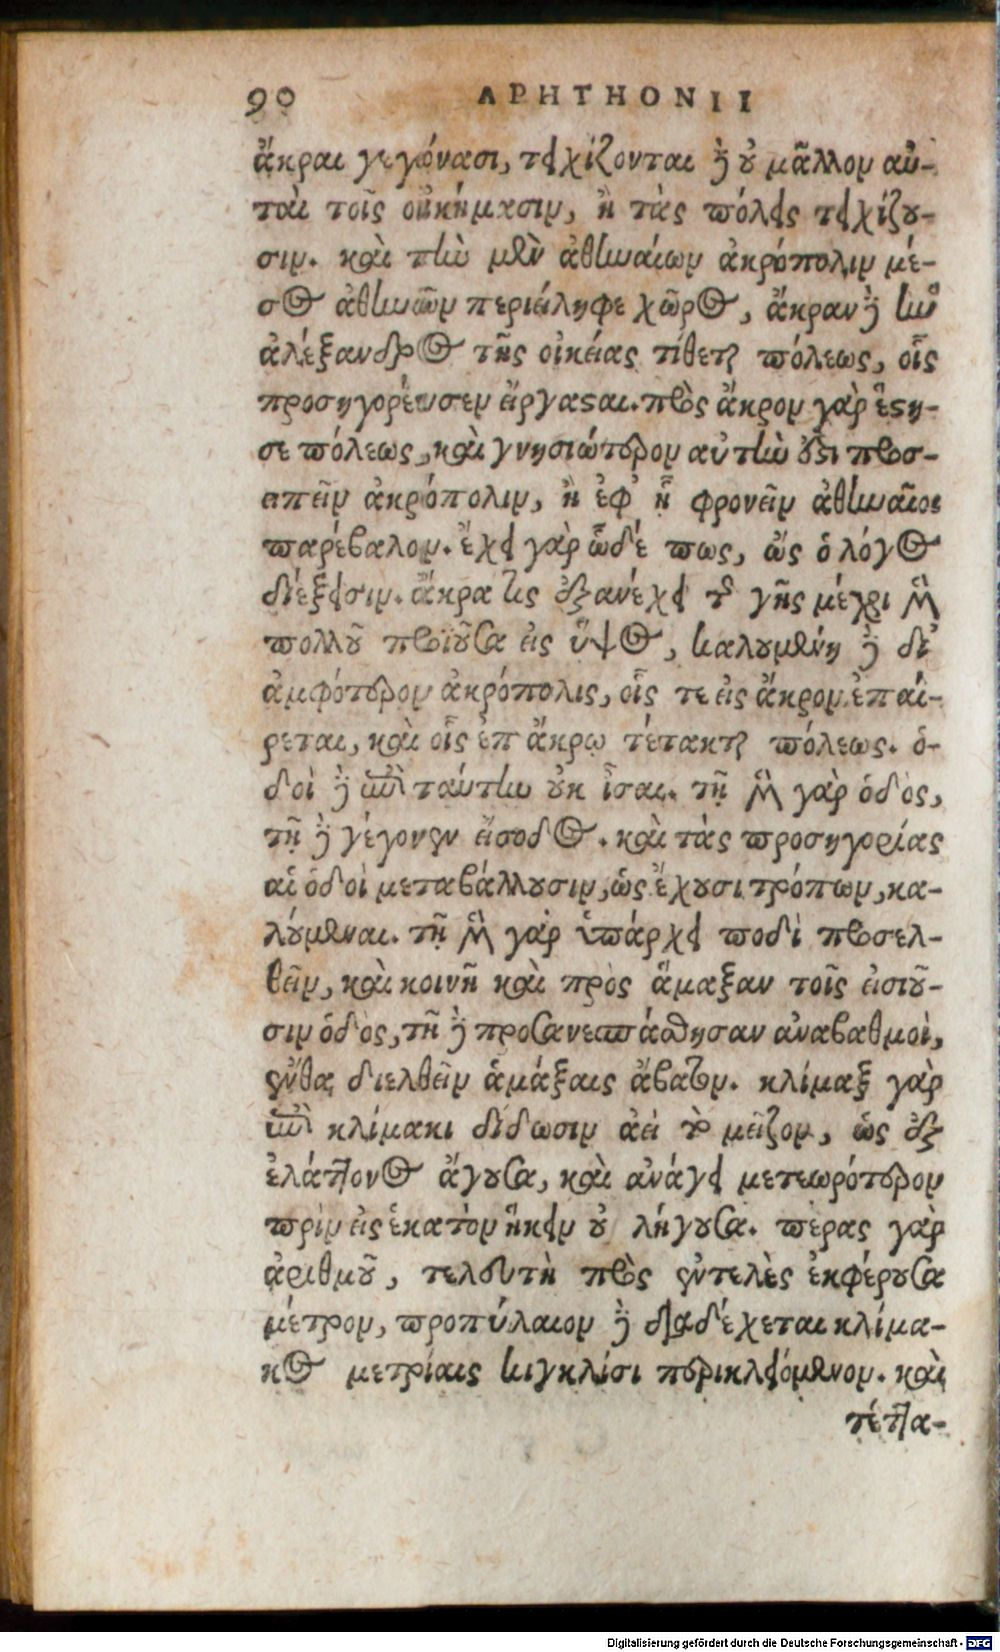 90 APHTHONII
ἄκραι γεγόνασι, τειχίζονται δὲ οὐ μᾶλλον αὐ-
ταὶ τοῖς οἰκήμασιν, ἢ τὰς πόλεις τειχίζου-
σιν. καὶ τὴν μὲν ἀθηναίων ἀκρόπολιν μέ-
σος ἀθηνῶν περιείληφε χῶρος, ἄκραν δὲ ἣν
ἀλέξανδρος τῆς οἰκείας τίθεται πόλεως, οἷς
προσηγορεύσεν εἴργασαι. πρὸς ἄκρον γὰρ ἔστη-
σε πόλεως, καὶ γνησιώτερον αὐτὴν ὅστι προσ-
ειπεῖν ἀκρόπολιν, ἢ ἐφ’ ᾗ φρονεῖν ἀθηναῖοι
παρέβαλον. ἔχει γὰρ ὧδέ πως, ὡς ὁ λόγος
διέξεισιν. ἄκρα τις ἐξανέχει τῆς γῆς μέχρι μὲν
πολλοῦ προϊοῦσα εἰς ὕψος, καλουμένη δὲ δι’
ἀμφότερον ἀκρόπολις, οἷς τε εἰς ἄκρον ἐπαί-
ρεται, καὶ οἷς ἐπ’ ἄκρῳ τέτακται πόλεως. ὁ-
δοὶ δὲ ἐπὶ ταύτην οὐκ ἶσαι. τῇ μὲν γὰρ ὁδὸς,
τῇ δὲ γέγονεν εἴσοδος. καὶ τὰς προσηγορίας
αἱ ὁδοὶ μεταβάλλουσιν, ὡς ἔχουσι τρόπων, κα-
λούμεναι. τῇ μὲν γὰρ ὑπάρχει ποδὶ προσελ-
θεῖν, καὶ κοινῇ καὶ πρὸς ἅμαξαν τοῖς εἰσιοῦ-
σιν ὁδὸς, τῇ δὲ προσανεσπάσθησαν ἀναβαθμοὶ,
ἔνθα διελθεῖν ἁμάξαις ἄβατον. κλίμαξ γὰρ
ἐπὶ κλίμακι δίδωσιν ἀεὶ τὸ μεῖζον, ὡς ἐξ
ἐλάττονος ἄγουσα, καὶ ἀνάγει μετεωρότερον
πρὶν εἰς ἑκατὸν ἥκειν οὐ λήγουσα. πέρας γὰρ
ἀριθμοῦ, τελευτὴ πρὸς ἐντελὲς ἐκφέρουσα
μέτρον, προπύλαιον δὲ διαδέχεται κλίμα-
κος μετρίαις κιγκλίσι περικλειόμενον. καὶ
τέττα-
Digitalisierung gefördert durch die Deutsche Forschungsgemeinschaft - DFG